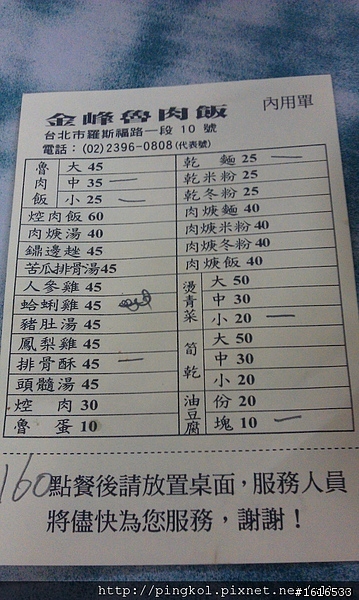 金峰魯肉飯 內用單
台北市羅斯福路一段 10 號
電話：(02)2396-0808(代表號)
魯肉飯 大 45
中 35 一
小 25 一
焢肉飯 60
肉焿湯 40
鼎邊趖 45
苦瓜排骨湯 45
人參雞 45
蛤蜊雞 45
豬肚湯 45
鳳梨雞 45
排骨酥 45 一
頭髓湯 45
焢肉 30
魯蛋 10
乾麵 25 一
乾米粉 25
乾冬粉 25
肉焿麵 40
肉焿米粉 40
肉焿冬粉 40
肉焿飯 40
燙青菜 大 50
中 30
小 20 一
筍乾 大 50
中 30
小 20
油豆腐 份 20
塊 10 一
160
點餐後請放置桌面，服務人員
將儘快為您服務，謝謝！
#1616533